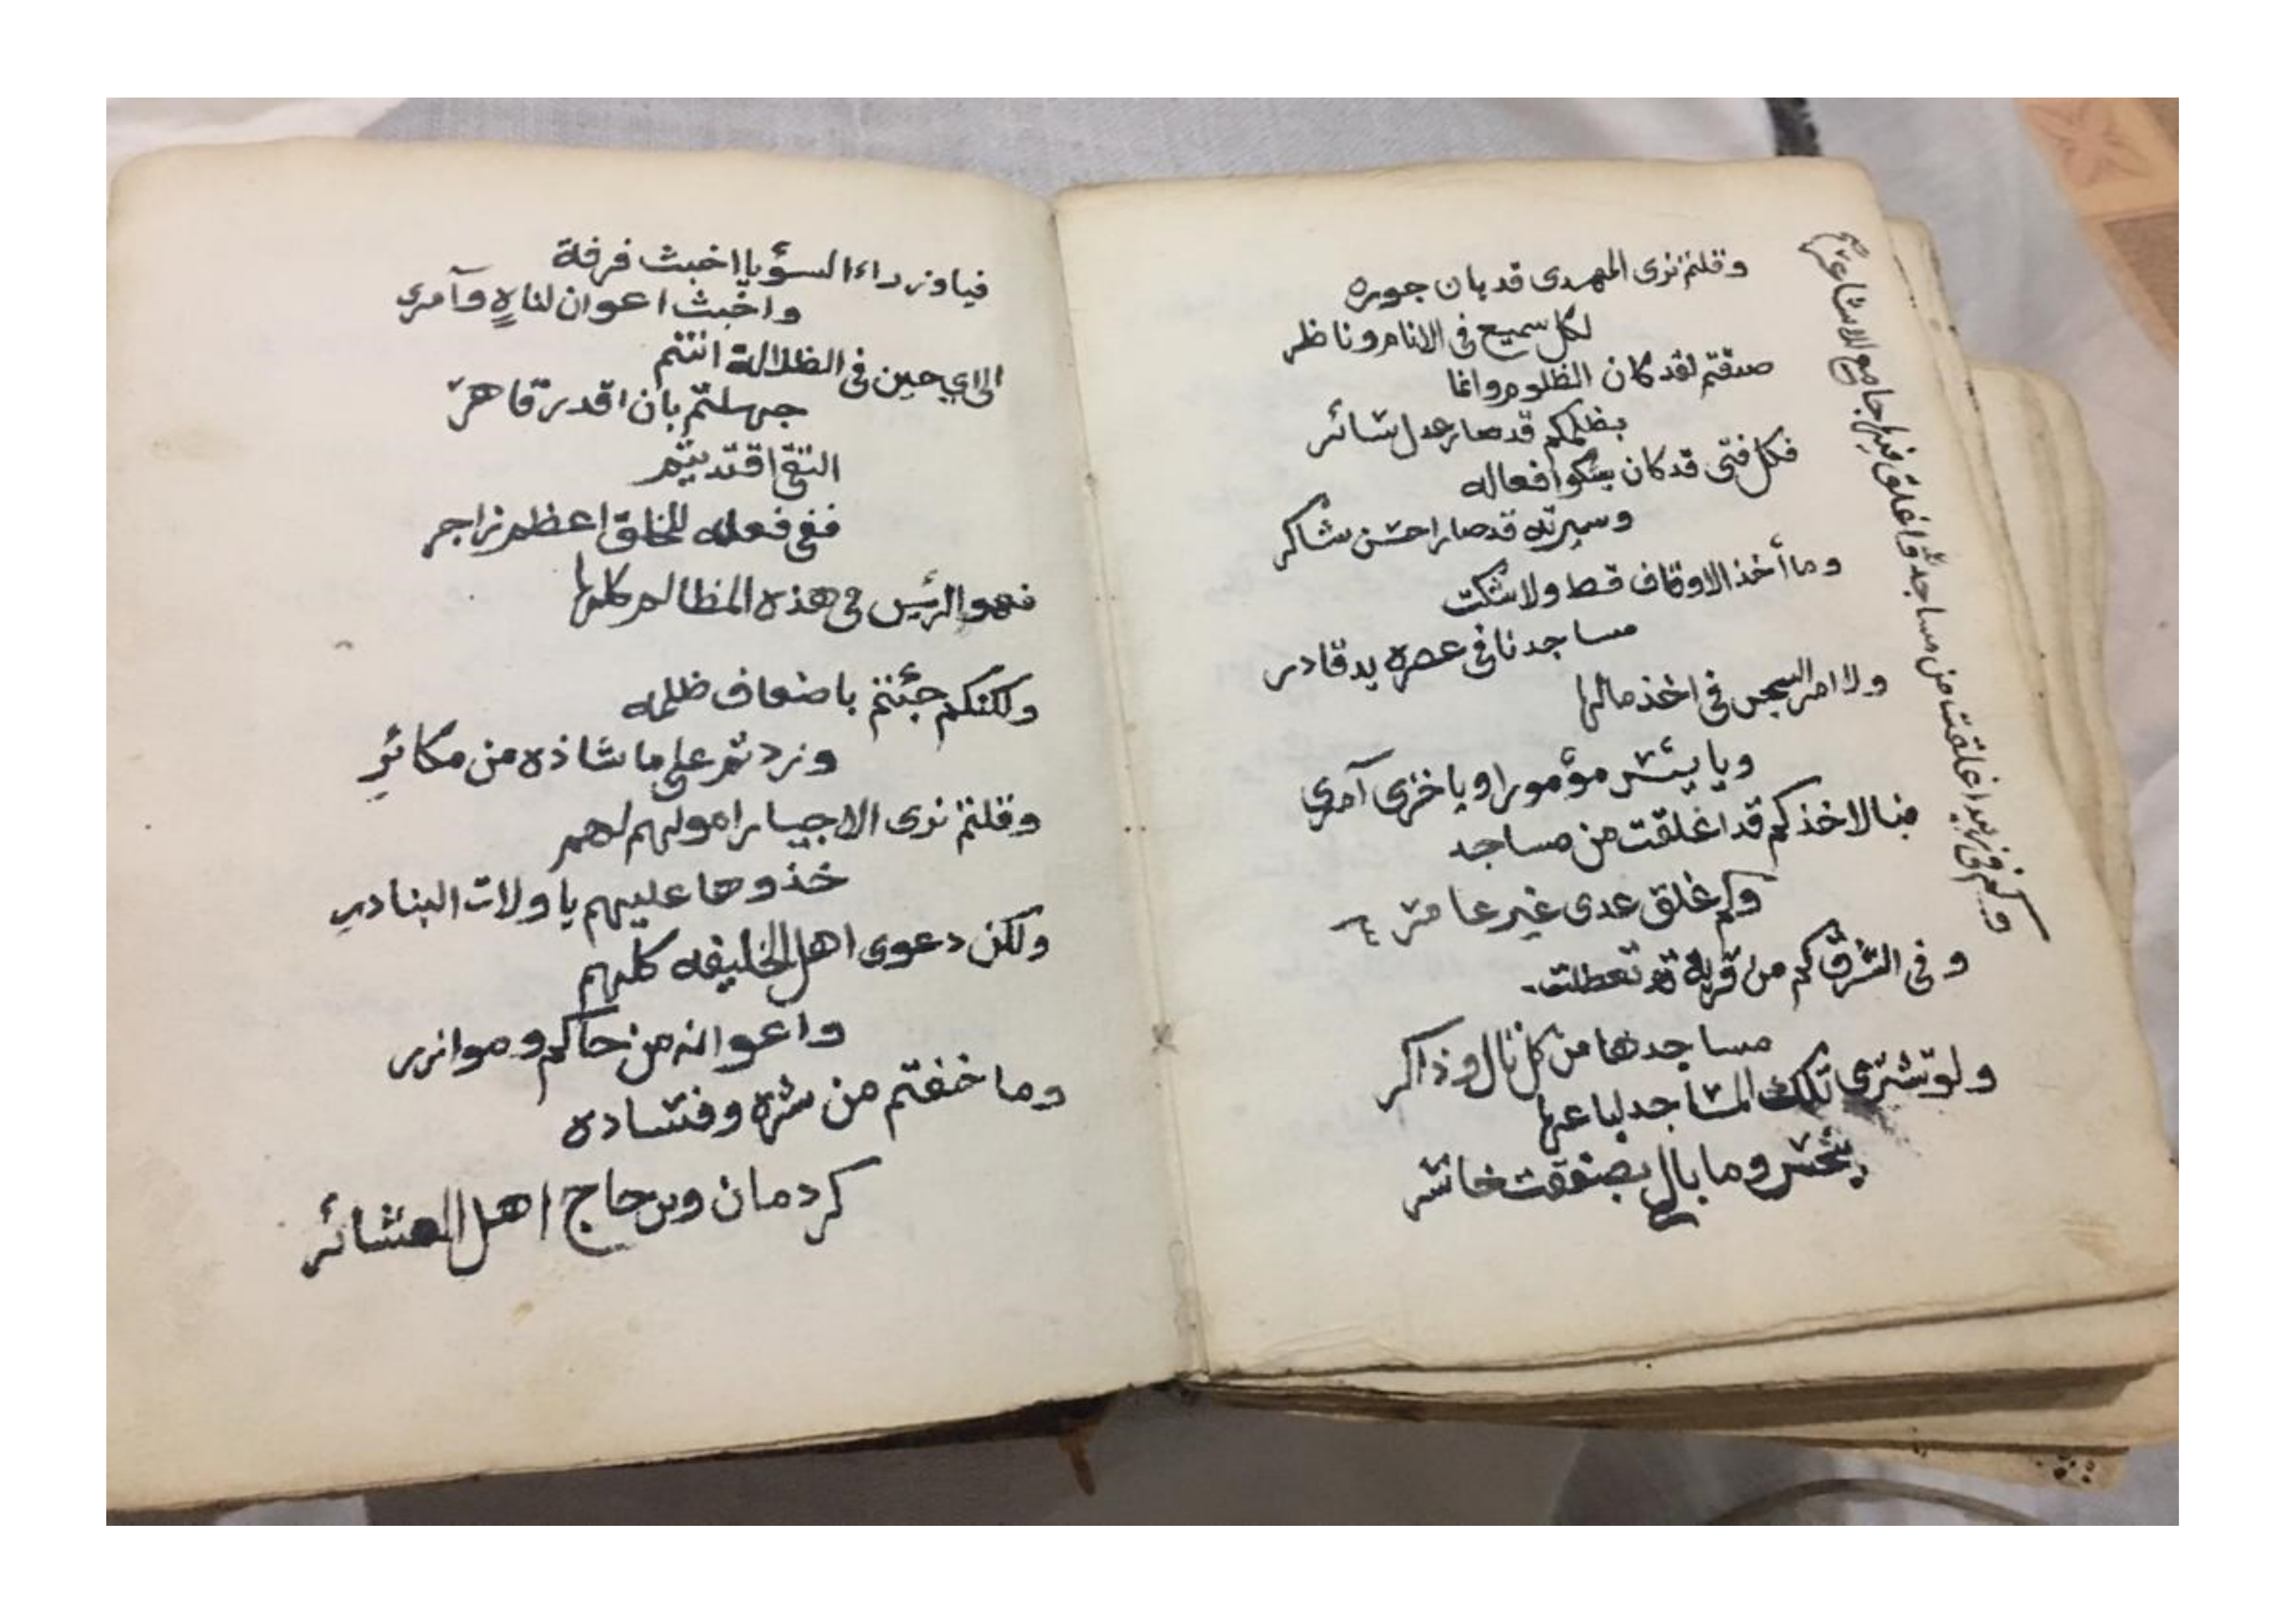 وقلتم نرى المهدى قد بان جوره
لكل سميع فى الانام وناظر
صدقتم لقد كان الظلوم وانما
بظلمكم قد صار عدل شائر
فكل فتى قد كان يشكوا فعاله
وسيرته قد صار احسن شاكر
وما أخذ الاوقاف قط ولا شكت
مساجدنا فى عصره يد قادر
ولا امر السجس فى اخذ مالها
ويا بئس مؤمورا ويا خزى آمرى
فبالاخذكم قد اغلقت من مساجد
وكم غلق عدى غير عامر
وفى الشرق كم من قرية قد تعطلت
مساجدها من كل تال وذاكر
ولو تشترى تلك المساجد لباعها
بخس وما بال بصفقت خاسر
وكم فى زبيد اغلقت من مساجد واغلق فيها جامع للاشاعر صح
فيا وزراء السؤ يا اخبث فرقة
واخبث اعوان لناهٍ وآمرى
الى اي حين فى الظلالة انتم
جهلتم بان اقدر قاهر
التقى اقتديتم
ففى فعله للخلق اعظم زاجر
فهو الرئيس فى هذه المظالم كلها
ولكنكم جئتم باضعاف ظلمه
وزدتم على ما شاذه من مكائرِ
وقلتم نرى الاجبار اموالهم لهم
خذوها عليهم يا ولات البنادرِ
ولكن دعوى اهل الخليفه كلهم
واعوانه من حاكم وموازر
وما خفتم من شره وفساده
كردمان وبن حاج اهل العشائر